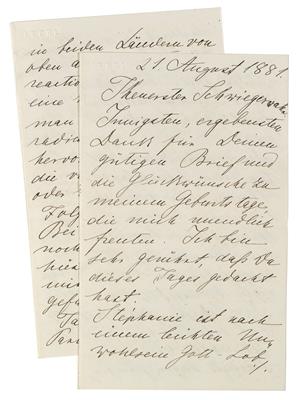 in beiden Ländern von
oben a
reactio
eine
man
radic
hervo
die v
oder
Folg
Bei
noch
hies
mis
gefü
Ta
Par
21. August 1881.
Theuerster Schwiegervater
Innigsten, ergebensten
Dank für Deinen
gütigen Brief und
die Glückwünsche zu
meinem Geburtstage,
die mich unendlich
freuten. Ich bin
sehr gerührt, daß Du
dieses Tages gedacht
hast.
Stephanie ist nach
einem leichten Un-
wohlsein Gott-Lob/